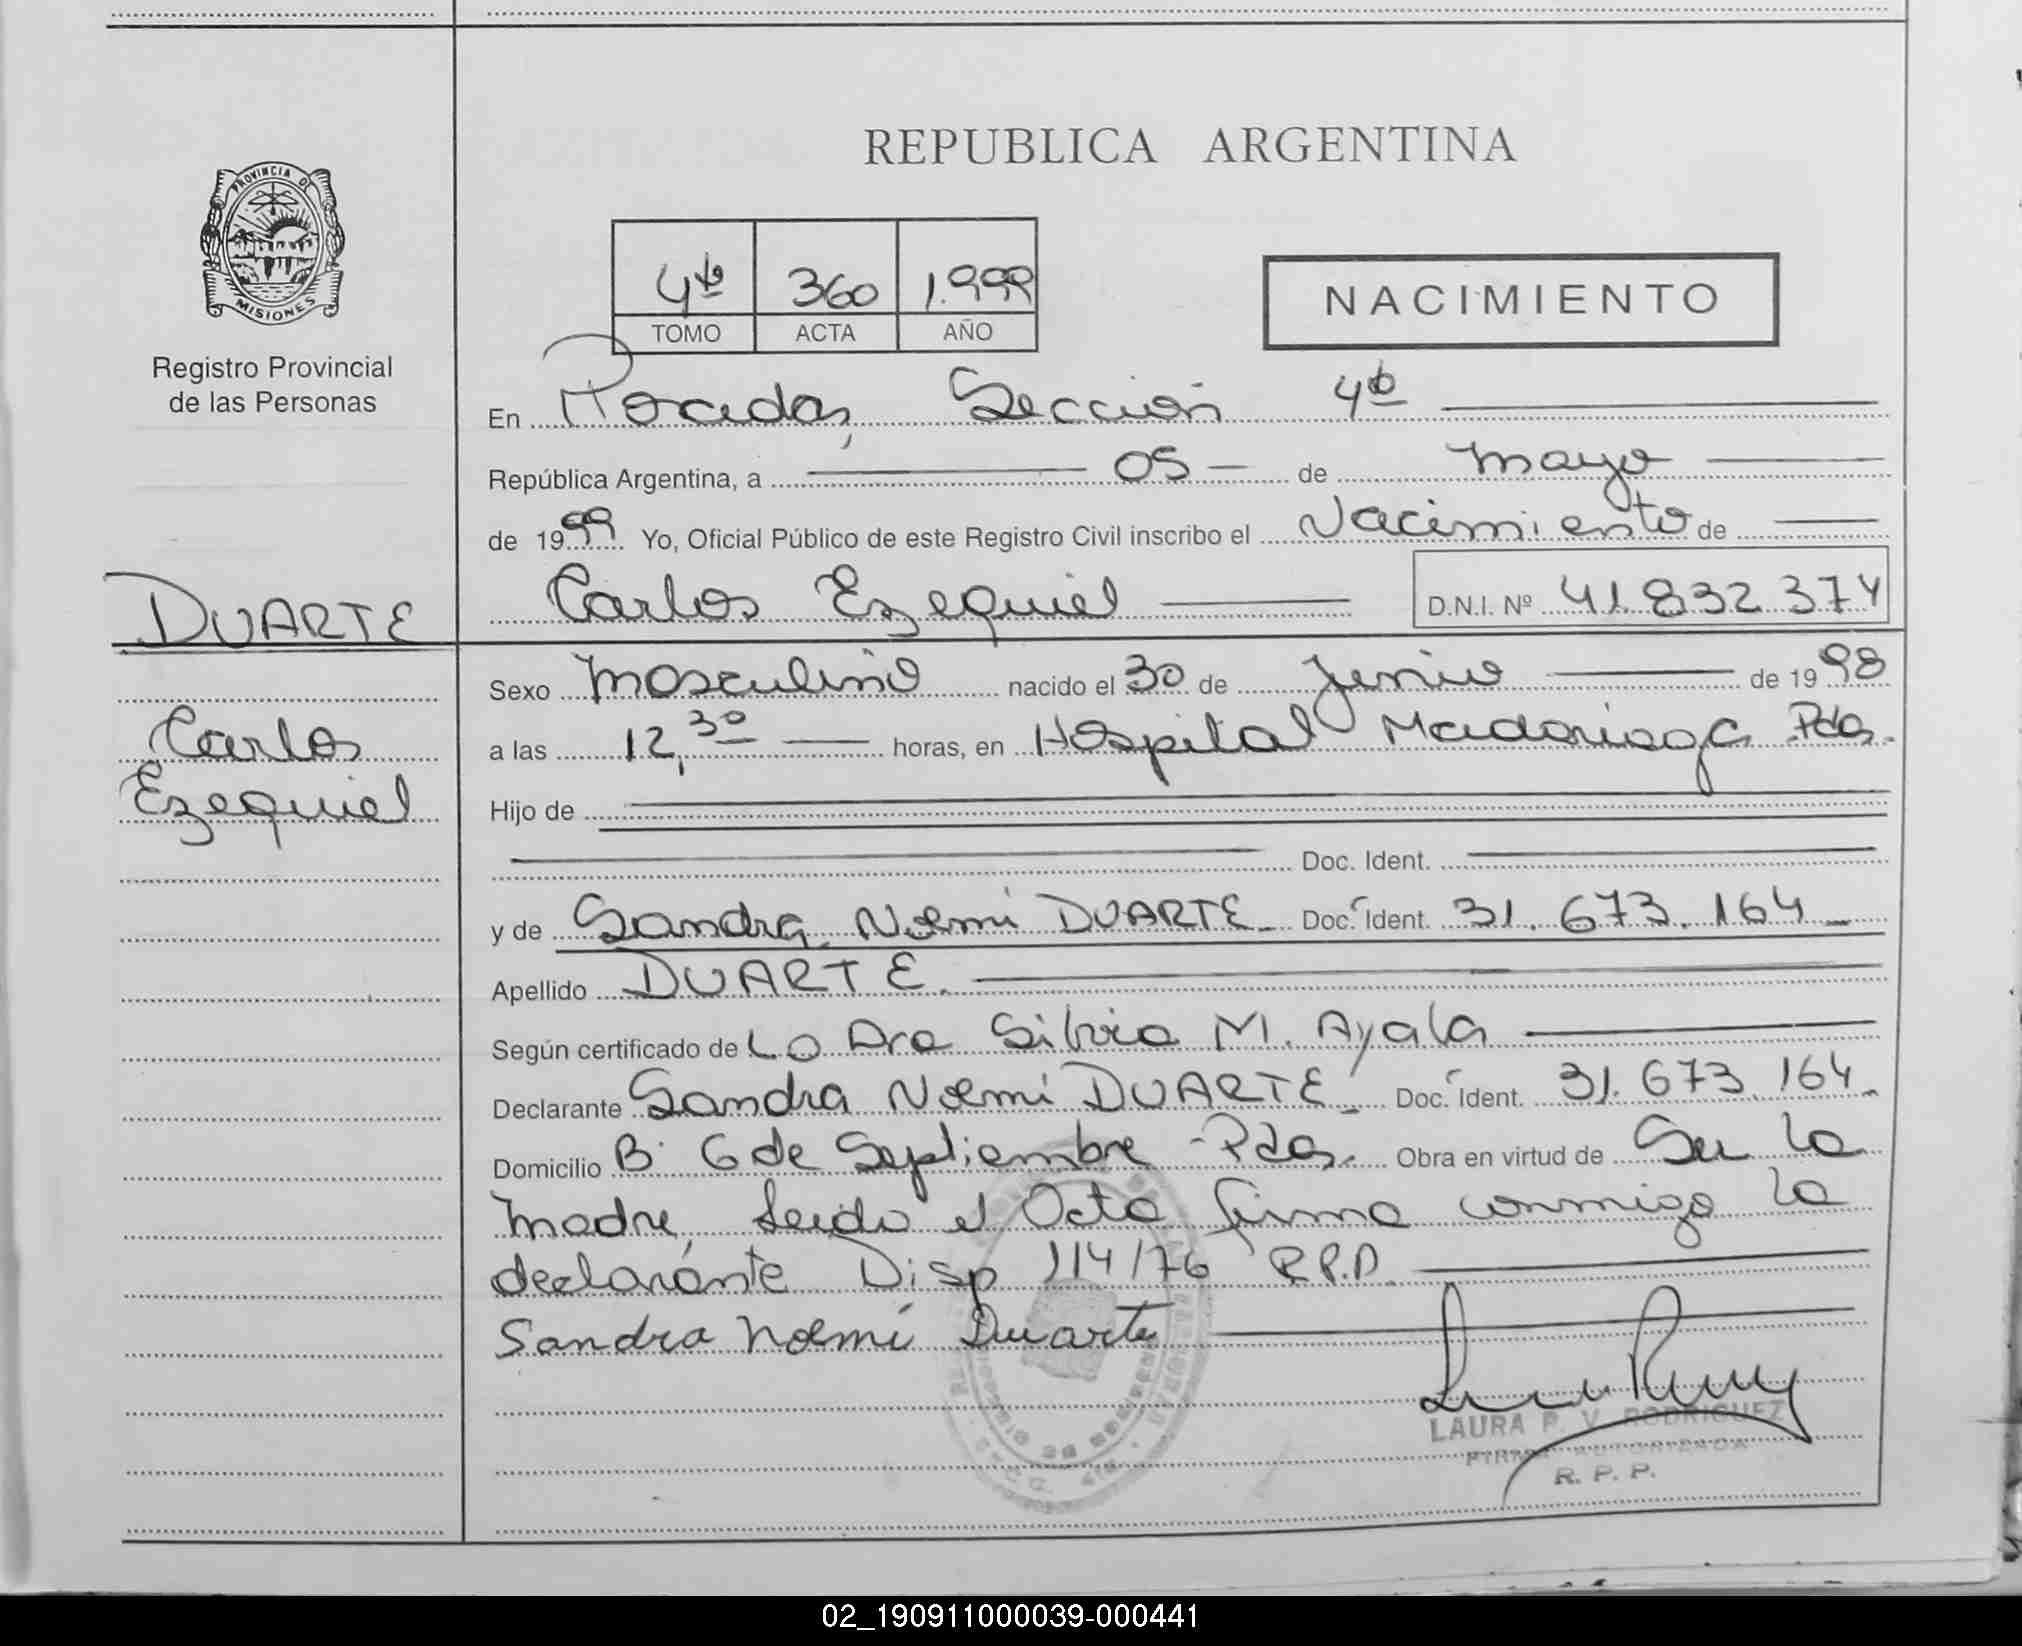 REPUBLICA ARGENTINA
PROVINCIA DE
MISIONES
Registro Provincial
de las Personas
4to 360 1.999
TOMO ACTA AÑO
NACIMIENTO
En Posadas, Sección 4ta
República Argentina, a 05 de mayo
de 1999 Yo, Oficial Público de este Registro Civil inscribo el Nacimiento de
Carlos Ezequiel D.N.I. Nº 41.832.374
DUARTE
Carlos
Ezequiel
Sexo Masculino nacido el 30 de Junio de 1998
a las 12,30 horas, en Hospital Madariaga Pdas.
Hijo de
Doc. Ident.
y de Sandra Noemí DUARTE Doc. Ident. 31.673.164
Apellido DUARTE.
Según certificado de La Dra Silvia M. Ayala
Declarante Sandra Noemí DUARTE Doc. Ident. 31.673.164.
Domicilio B° 6 de Septiembre - Pdas. Obra en virtud de Ser la
madre, Leida el Acta firma conmigo la
declarante Disp 114/76 R.P.P.
Sandra Noemí Duarte
LAURA P. V. RODRIGUEZ
FIRMA AUTORIZADA
R. P. P.
02_190911000039-000441